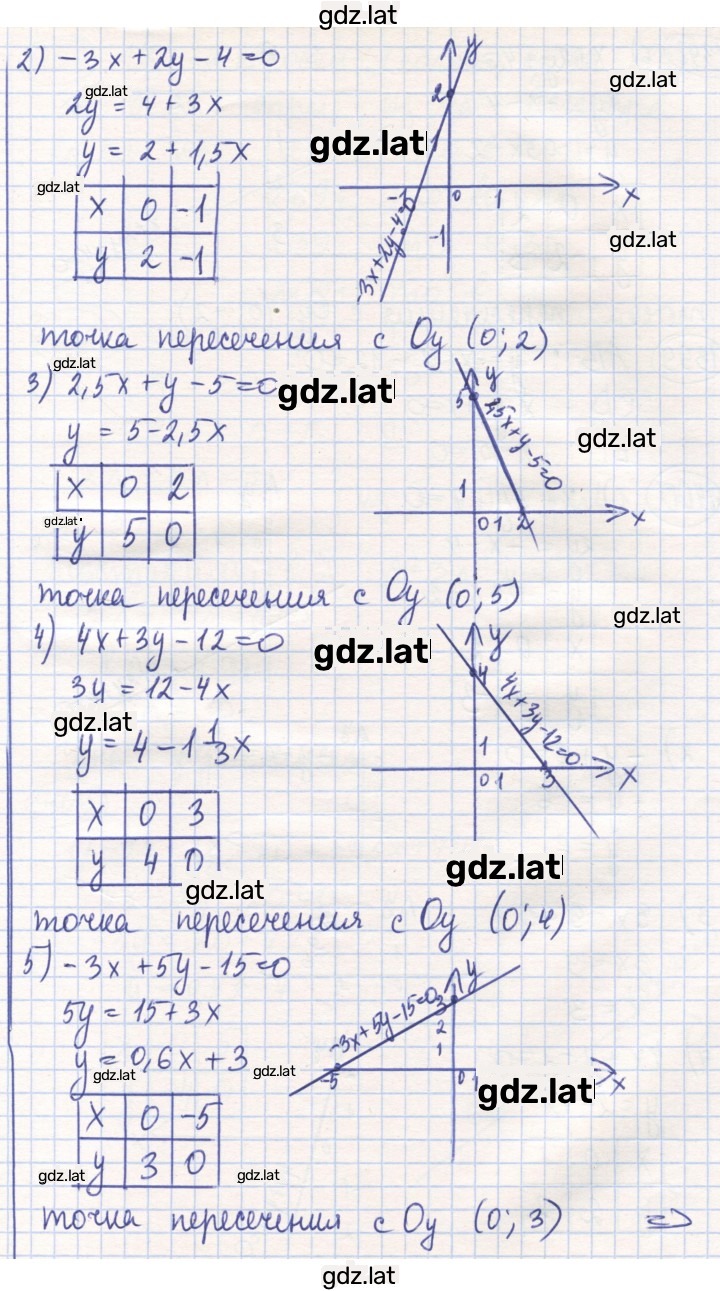 gdz.lat
2) -3x + 2y - 4 = 0
gdz.lat
2y = 4 + 3x
y = 2 + 1,5x
gdz.lat
x 0 -1
y 2 -1
y
2
gdz.lat
gdz.lat
1
-1 0 1 x
-1
gdz.lat
-3x+2y-4=0
точка пересечения с Oy (0; 2)
gdz.lat
3) 2,5x + y - 5 = 0
gdz.lat
y = 5 - 2,5x
x 0 2
gdz.lat
y 5 0
y
5
2,5x+y-5=0
gdz.lat
1
0 1 2 x
точка пересечения с Oy (0; 5)
gdz.lat
4) 4x + 3y - 12 = 0
gdz.lat
3y = 12 - 4x
gdz.lat
y = 4 - 1 1/3 x
x 0 3
y 4 0
gdz.lat
y
4
4x+3y-12=0
1
0 1 3 x
gdz.lat
точка пересечения с Oy (0; 4)
5) -3x + 5y - 15 = 0
5y = 15 + 3x
y = 0,6x + 3
gdz.lat
gdz.lat
x 0 -5
y 3 0
gdz.lat
gdz.lat
y
-3x+5y-15=0
3
2
1
-5 0 1 x
gdz.lat
точка пересечения с Oy (0; 3) =>
gdz.lat